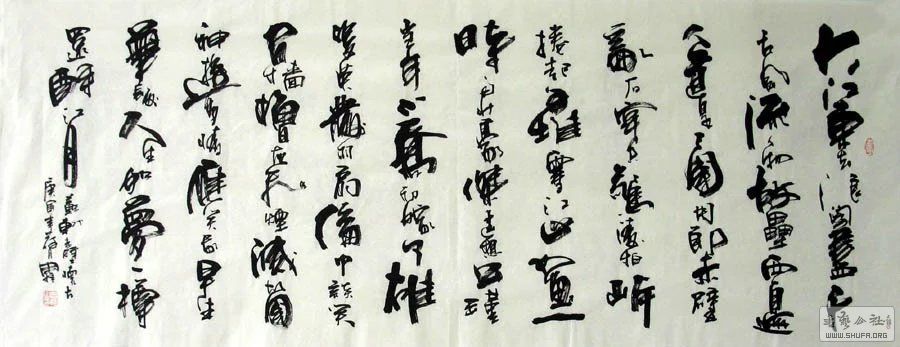 大江東去浪淘盡千
古風流人物故壘西邊
人道是三國周郎赤壁
亂石穿空驚濤拍岸
捲起千堆雪江山如畫一
時多少豪傑遥想公瑾
當年小喬初嫁了雄
姿英發羽扇綸巾談笑
間檣櫓灰飛煙滅故國
神遊多情應笑我早生
華髮人生如夢一樽
還酹江月
庚寅年
WWW.SHUFA.ORG